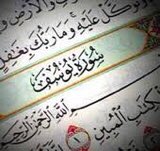 والأرض
وتوكل عليه وما ربك بغفل
سورة يوسف
بسم الله الرحمن الرحيم
الكتب المبين ١